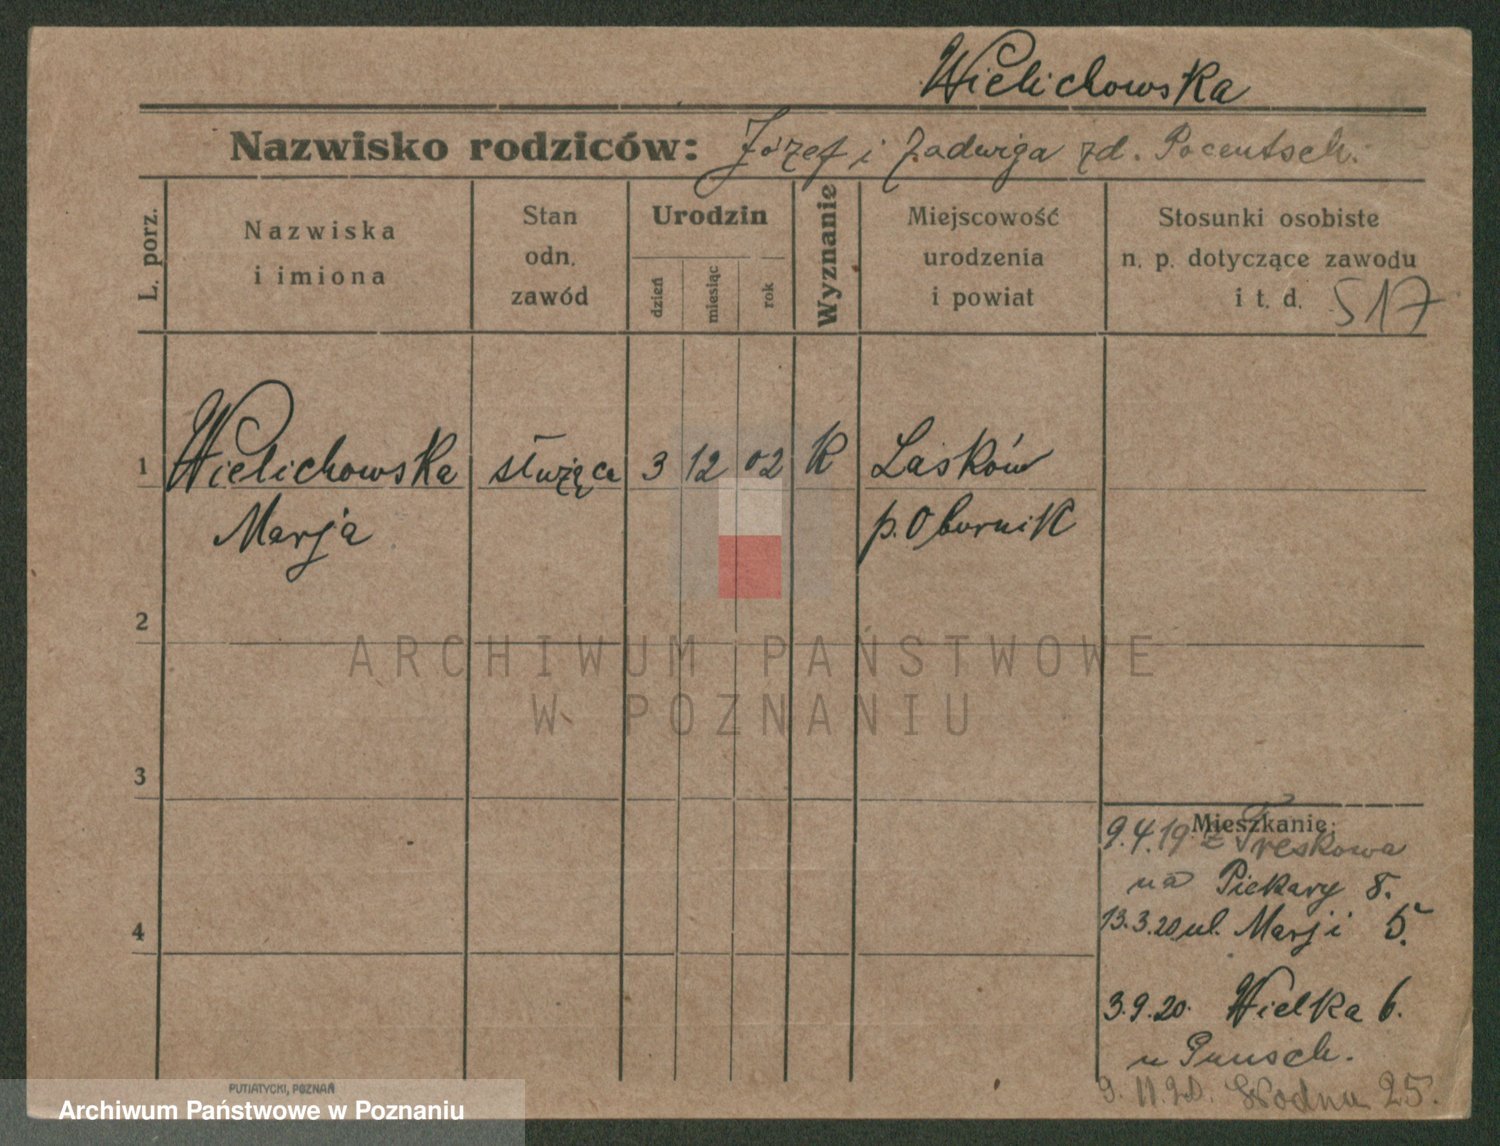 Wielichowska
Nazwisko rodziców: Józef i Jadwiga zd. Pocentsch.
L. porz.
Nazwiska
i imiona
Stan
odn.
zawód
Urodzin
dzień
miesiąc
rok
Wyznanie
Miejscowość
urodzenia
i powiat
Stosunki osobiste
n. p. dotyczące zawodu
i t. d. 517
1 Wielichowska służąca 3 12 02 K Lasków
Marja p. Obornik
2
ARCHIWUM PAŃSTWOWE
W POZNANIU
3
Mieszkanie:
9.4.19. z Treskowa
na Piekary 8.
4
13.3.20 ul. Marji 5.
3.9.20. Wielka 6.
u Punsch.
9.11.20. Wodna 25.
PUTIATYCKI, POZNAŃ
Archiwum Państwowe w Poznaniu